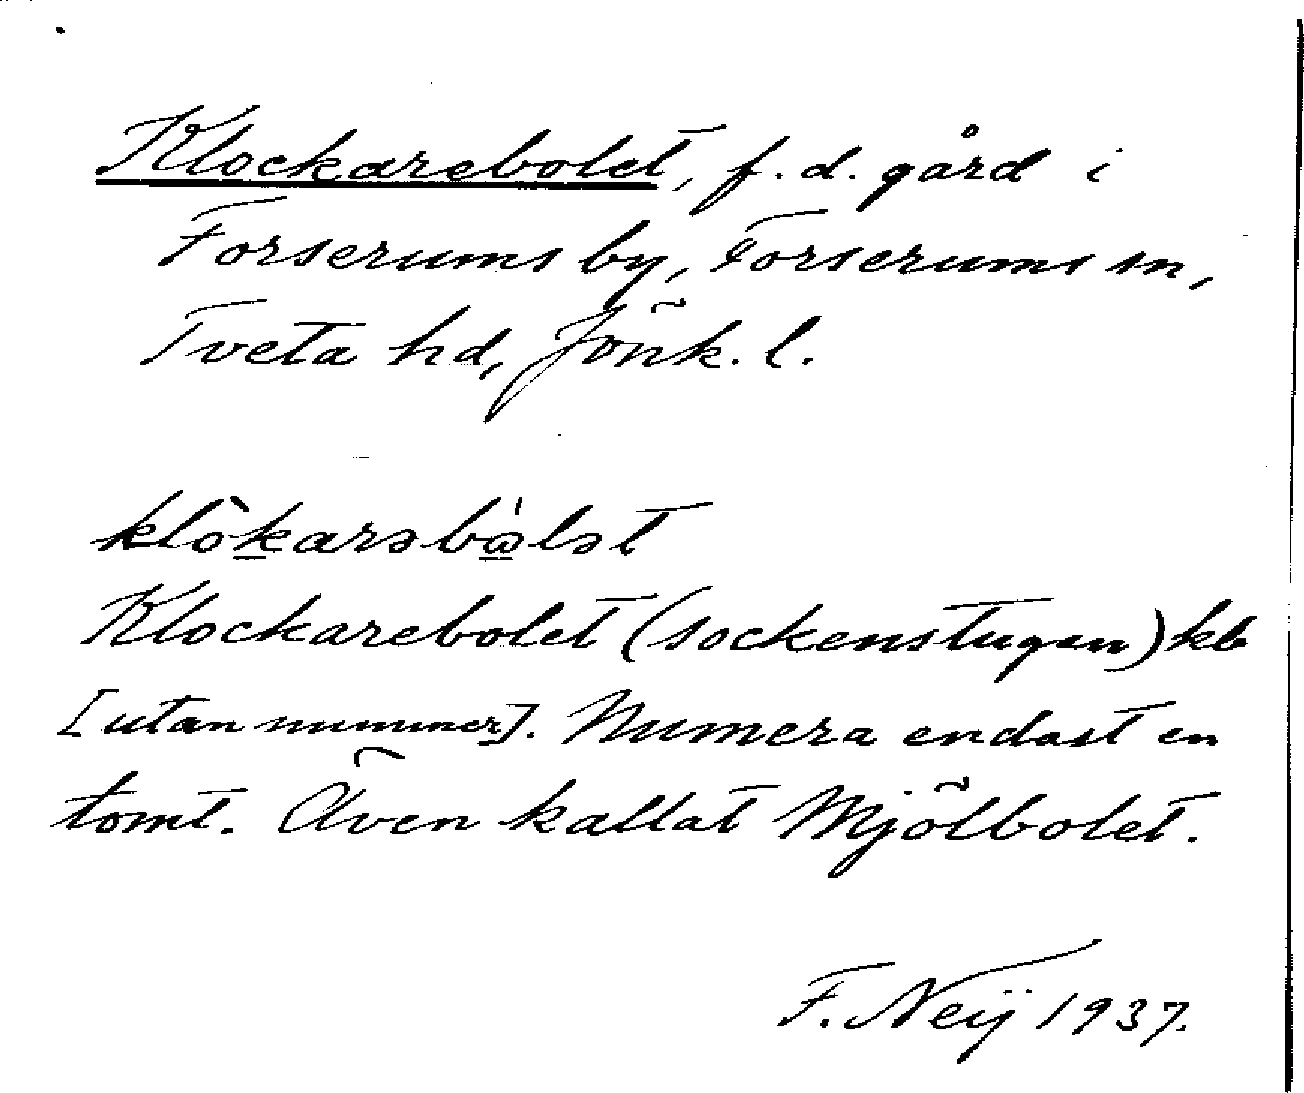 Klockarebolet, f. d. gård i
Forserums by, Forserums sn,
Tveta hd, Jönk. l.
klòkarəbɷ̀lət
Klockarebolet (sockenstugan) kb
[utan nummer]. Numera endast en
tomt. Även kallat Mjölbolet.
F. Neij 1937.